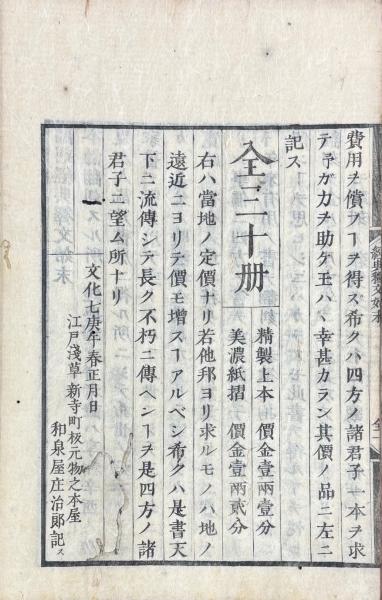 費用ヲ償フヿヲ得ズ希クハ四方ノ諸君子一本ヲ求
テ予ガ力ヲ助ケ玉ハヾ幸甚カラン其價ノ品ニ左ニ
記ス
全三十册
精製上本 價金壹兩壹分
美濃紙摺 價金壹兩貳分
右ハ當地ノ定價ナリ若他邦ヨリ求ルモノハ地ノ
遠近ニヨリテ價モ增スヿアルベシ希クハ是書天
下ニ流傳シテ長ク不朽ニ傳ヘンヿヲ是四方ノ諸
君子ニ望ム所ナリ
文化七庚午春正月日
江戸淺草新寺町板元物之本屋
和泉屋庄治郞記ス
經典釋文始末